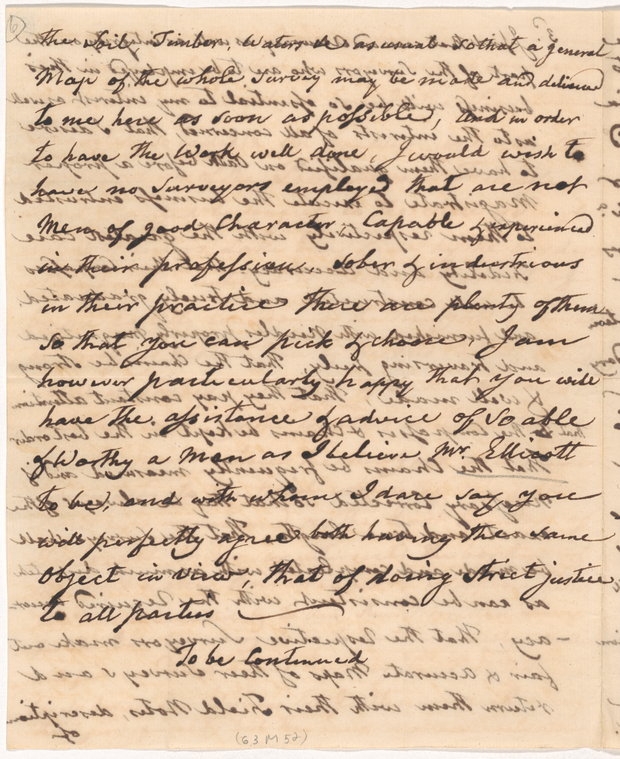 (6)
the Soil Timber, Waters &c as usual so that a general
Map of the whole survey may be made and delivered
to me here as soon as possible, and in order
to have the Work well done, I would wish to
have no Surveyors employed that are not
Men of good Character Capable & experienced
in their profession sober & industrious
in their practice there are plenty of them
so that you can pick & choose, I am
however particularly happy that you will
have the assistance & advice of so able
& Worthy a Man as I believe Mr. Ellicott
to be, and with whom I dare say you
will perfectly agree both having the same
Object in view, that of doing Strict justice
to all parties
To be Continued
(63 M 52)